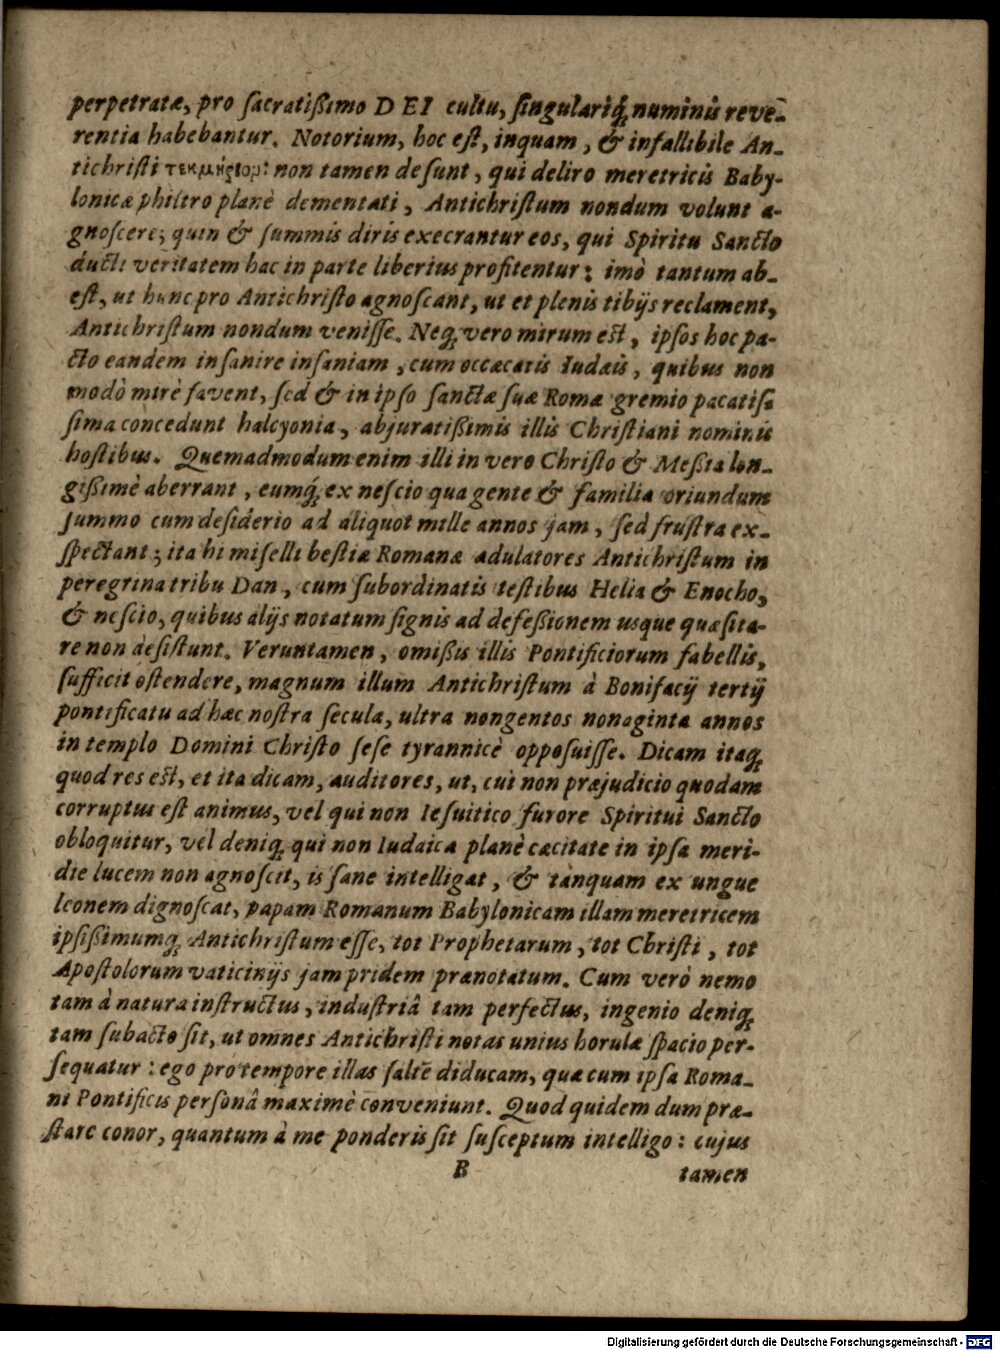 perpetratæ, pro ſacratißimo DEI cultu, ſingulariq́; numinis reve-
rentia habebantur. Notorium, hoc eſt, inquam, & infallibile An-
tichriſti τεκμήριον: non tamen deſunt, qui deliro meretricis Baby-
lonicæ philtro planè dementati, Antichriſtum nondum volunt a-
gnoſcere; quin & ſummis diris execrantur eos, qui Spiritu Sancto
ducti veritatem hac in parte liberius profitentur: imò tantum ab-
eſt, ut hunc pro Antichriſto agnoſcant, ut et plenis tibijs reclament,
Antichriſtum nondum veniſſe. Neq; vero mirum est, ipſos hoc pa-
cto eandem inſanire inſaniam, cum occæcatis Iudæis, quibus non
modò mirè favent, ſed & in ipſo ſanctæ ſuæ Romæ gremio pacatiſ-
ſima concedunt halcyonia, abjuratißimis illis Chriſtiani nominis
hoſtibus. Quemadmodum enim illi in vero Chriſto & Meßia lon-
gißimè aberrant, eumq́; ex neſcio qua gente & familia oriundum
ſummo cum deſiderio ad aliquot mille annos jam, ſed fruſtra ex-
ſpectant; ita hi miſelli beſtiæ Romanæ adulatores Antichriſtum in
peregrina tribu Dan, cum ſubordinatis teſtibus Helia & Enocho,
& neſcio, quibus alijs notatum ſignis ad defeßionem usque quæſita-
re non deſiſtunt. Veruntamen, omißis illis Pontificiorum fabellis,
ſufficit oſtendere, magnum illum Antichriſtum à Bonifacij tertij
pontificatu ad hæc noſtra ſecula, ultra nongentos nonaginta annos
in templo Domini Chriſto ſeſe tyrannicè oppoſuiſſe. Dicam itaq;
quod res est, et ita dicam, auditores, ut, cui non præjudicio quodam
corruptus eſt animus, vel qui non Ieſuitico furore Spiritui Sancto
obloquitur, vel deniq; qui non Iudaica planè cæcitate in ipſa meri-
die lucem non agnoſcit, is ſane intelligat, & tanquam ex ungue
leonem dignoſcat, papam Romanum Babylonicam illam meretricem
ipſißimumq; Antichriſtum eſſe, tot Prophetarum, tot Chriſti, tot
Apoſtolorum vaticinijs jam pridem prænotatum. Cum verò nemo
tam à natura inſtructus, induſtriâ tam perfectus, ingenio deniq;
tam ſubacto ſit, ut omnes Antichriſti notas unius horulæ ſpacio per-
ſequatur: ego pro tempore illas ſaltē diducam, quæ cum ipſa Roma-
ni Pontificis perſonâ maximè conveniunt. Quod quidem dum præ-
ſtare conor, quantum à me ponderis ſit ſuſceptum intelligo: cujus
B tamen
Digitalisierung gefördert durch die Deutsche Forschungsgemeinschaft - DFG